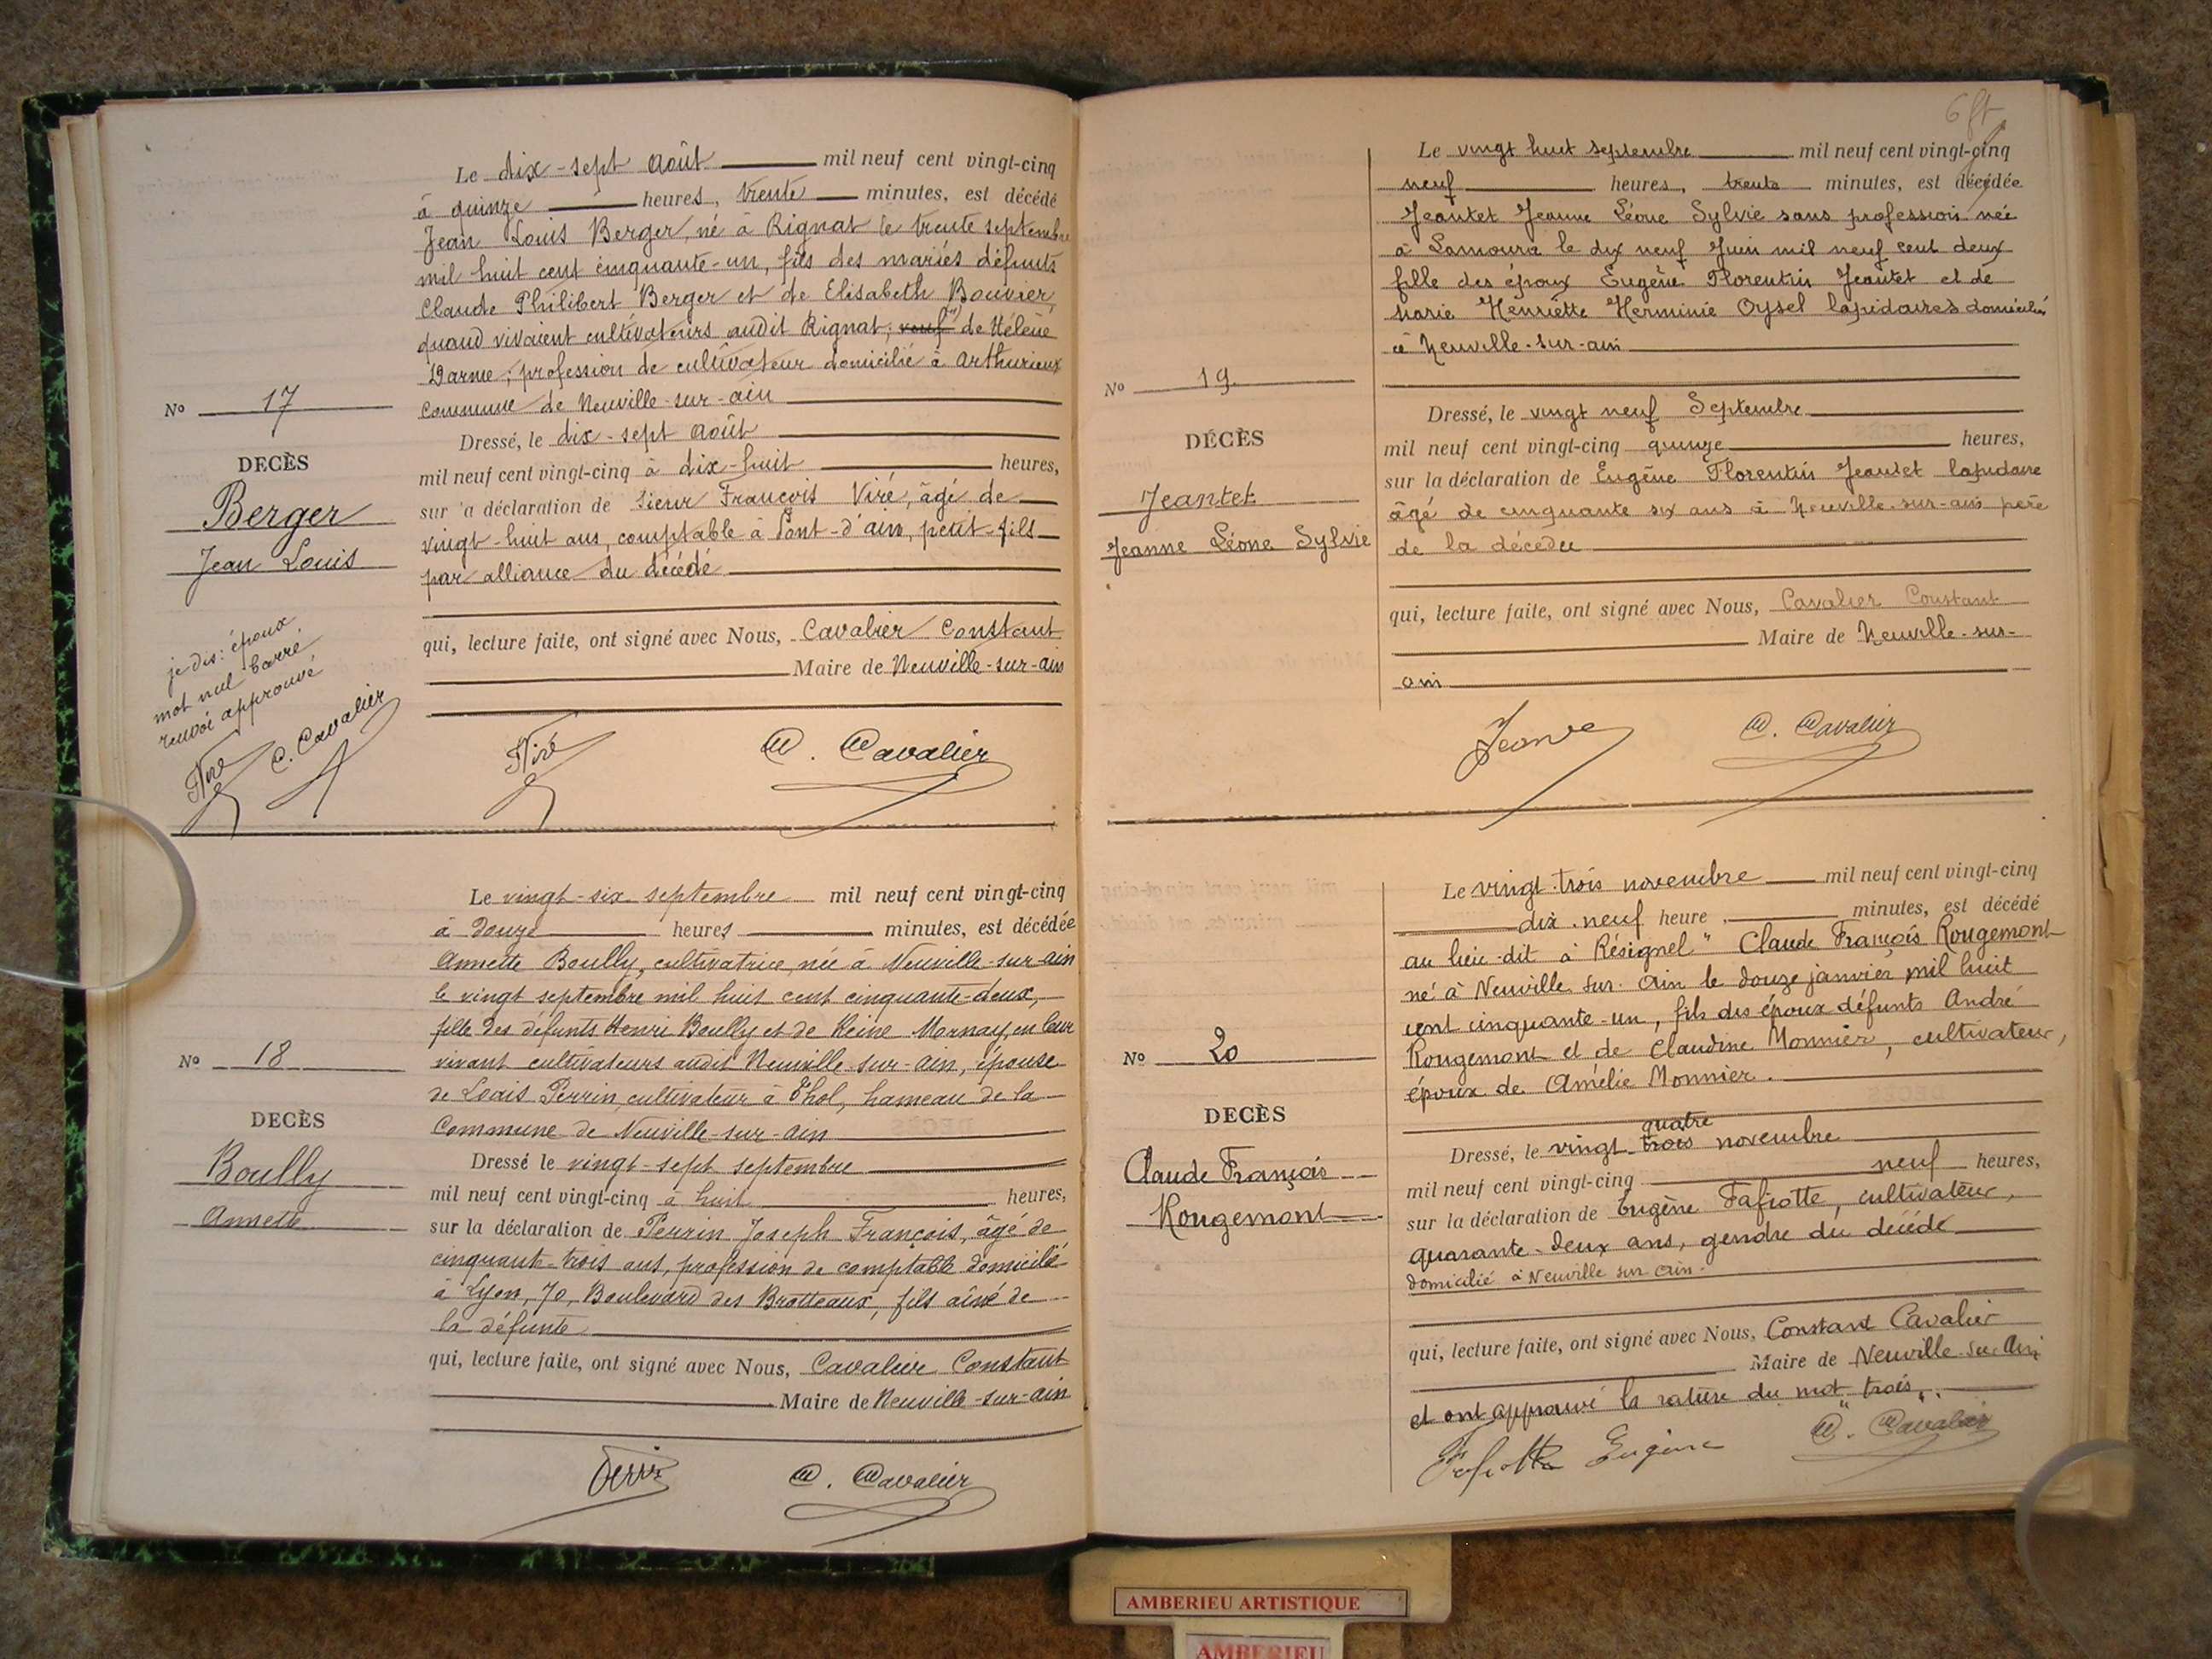 Le dix-sept août mil neuf cent vingt-cinq
à quinze heures, trente minutes, est décédé
Jean Louis Berger, né à Rignat le trente septembre
mil huit cent cinquante-un, fils des mariés défunts
Claude Philibert Berger et de Elisabeth Bouvier,
quand vivaient cultivateurs audit Rignat, veuf de Hélène
Darme; profession de cultivateur domicilié à Arthurieux
commune de Neuville-sur-ain
Nº 17
DECÈS
Berger
Jean Louis
Dressé, le dix-sept août
mil neuf cent vingt-cinq à dix-huit heures,
sur 'a déclaration de sieur François Viré, âgé de
vingt-huit ans, comptable à Pont-d'ain, petit-fils
par alliance du décédé
qui, lecture faite, ont signé avec Nous, Cavalier Constant
Maire de Neuville-sur-ain
je dis: époux,
mot nul barré,
renvoi approuvé
FViré C. Cavalier
FViré C. Cavalier
Le vingt-six septembre mil neuf cent vingt-cinq
à douze heures minutes, est décédée
Annette Boully, cultivatrice, née à Neuville-sur-ain
le vingt septembre mil huit cent cinquante-deux,
fille des défunts Henri Boully et de Reine Mornay, en leur
vivant cultivateurs audit Neuville-sur-ain, épouse
de Louis Perrin, cultivateur à Thol, hameau de la
Commune de Neuville-sur-ain
Nº 18
DECÈS
Boully
Annette
Dressé le vingt-sept septembre
mil neuf cent vingt-cinq à huit heures,
sur la déclaration de Perrin Joseph François, âgé de
cinquante-trois ans, profession de comptable domicilié
à Lyon, 70, Boulevard des Brotteaux, fils aîné de
la défunte
qui, lecture faite, ont signé avec Nous, Cavalier Constant
Maire de Neuville-sur-ain
Perrin C. Cavalier
Le vingt huit septembre mil neuf cent vingt-cinq
neuf heures, trente minutes, est décédée
Jeantet Jeanne Léone Sylvie sans profession née
à Lamoura le dix neuf Juin mil neuf cent deux
fille des époux Eugène Florentin Jeantet et de
Marie Henriette Herminie Oysel lapidaires domiciliés
à Neuville-sur-ain
Nº 19
DÉCÈS
Jeantet
Jeanne Léone Sylvie
Dressé, le vingt neuf Septembre
mil neuf cent vingt-cinq quinze heures,
sur la déclaration de Eugène Florentin Jeantet lapidaire
âgé de cinquante six ans à Neuville-sur-ain père
de la décédée
qui, lecture faite, ont signé avec Nous, Cavalier Constant
Maire de Neuville-sur-
ain
C. Cavalier
Le vingt-trois novembre mil neuf cent vingt-cinq
dix-neuf heure, minutes, est décédé
au lieu-dit à Résignel" Claude François Rougemont
né à Neuville sur Ain le douze janvier mil huit
cent cinquante-un, fils des époux défunts André
Rougemont et de Claudine Monnier, cultivateur,
époux de Amélie Monnier.
Nº 20
DECÈS
Claude François
Rougemont
quatre
Dressé, le vingt-trois novembre
mil neuf cent vingt-cinq neuf heures,
sur la déclaration de Eugène Tafiotte, cultivateur,
quarante-deux ans, gendre du décédé
domicilié à Neuville sur Ain.
qui, lecture faite, ont signé avec Nous, Constant Cavalier
Maire de Neuville-sur-Ain
et ont approuvé la rature du mot "trois".
Tafiotte Eugène C. Cavalier
AMBERIEU ARTISTIQUE
AMBERIEU